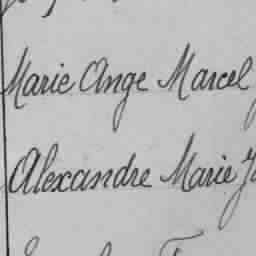 Marie Ange Marcel
Alexandre Marie